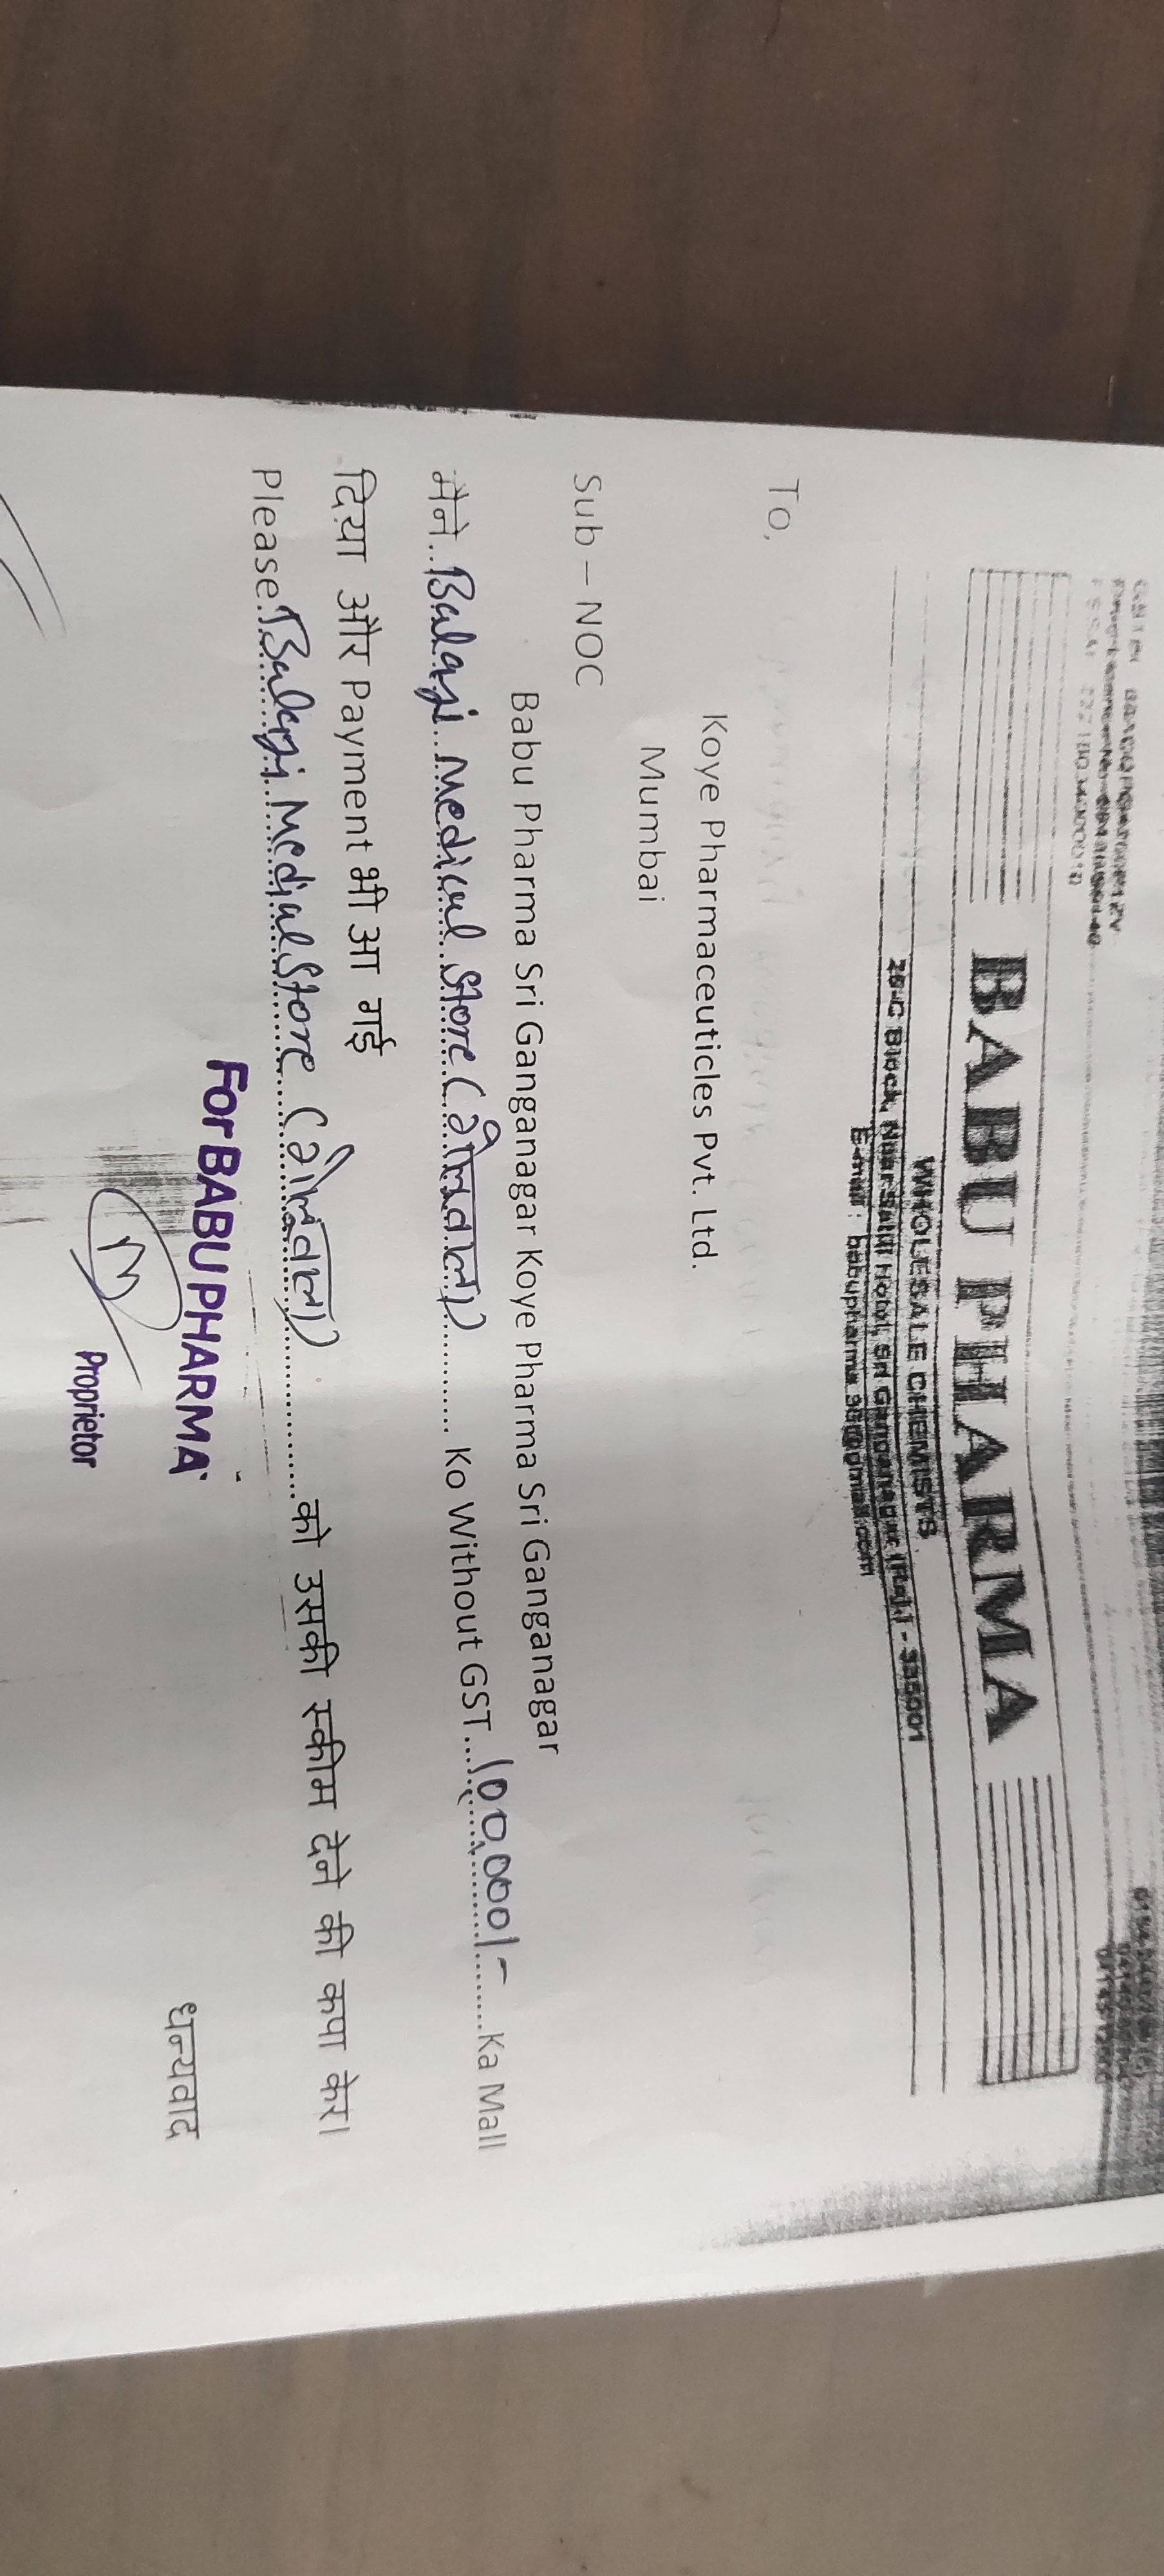 BABU PHARMA
WHOLESALE CHEMISTS
26-C Block, Near Sathi Hotel, Sri Ganganagar (Raj.) - 335001
E-mail :
To,
Koye Pharmaceuticles Pvt. Ltd.
Mumbai
Sub – NOC
Babu Pharma Sri Ganganagar Koye Pharma Sri Ganganagar
मैने.. Balaji Medical Store ( गोलुवाला ) .......... Ko Without GST.... 100,000/- ........Ka Mall
दिया और Payment भी आ गई
Please. Balaji Medial Store ( गोलुवाला ) .......... को उसकी स्कीम देने की कपा केर।
धन्यवाद
For BABU PHARMA
Proprietor